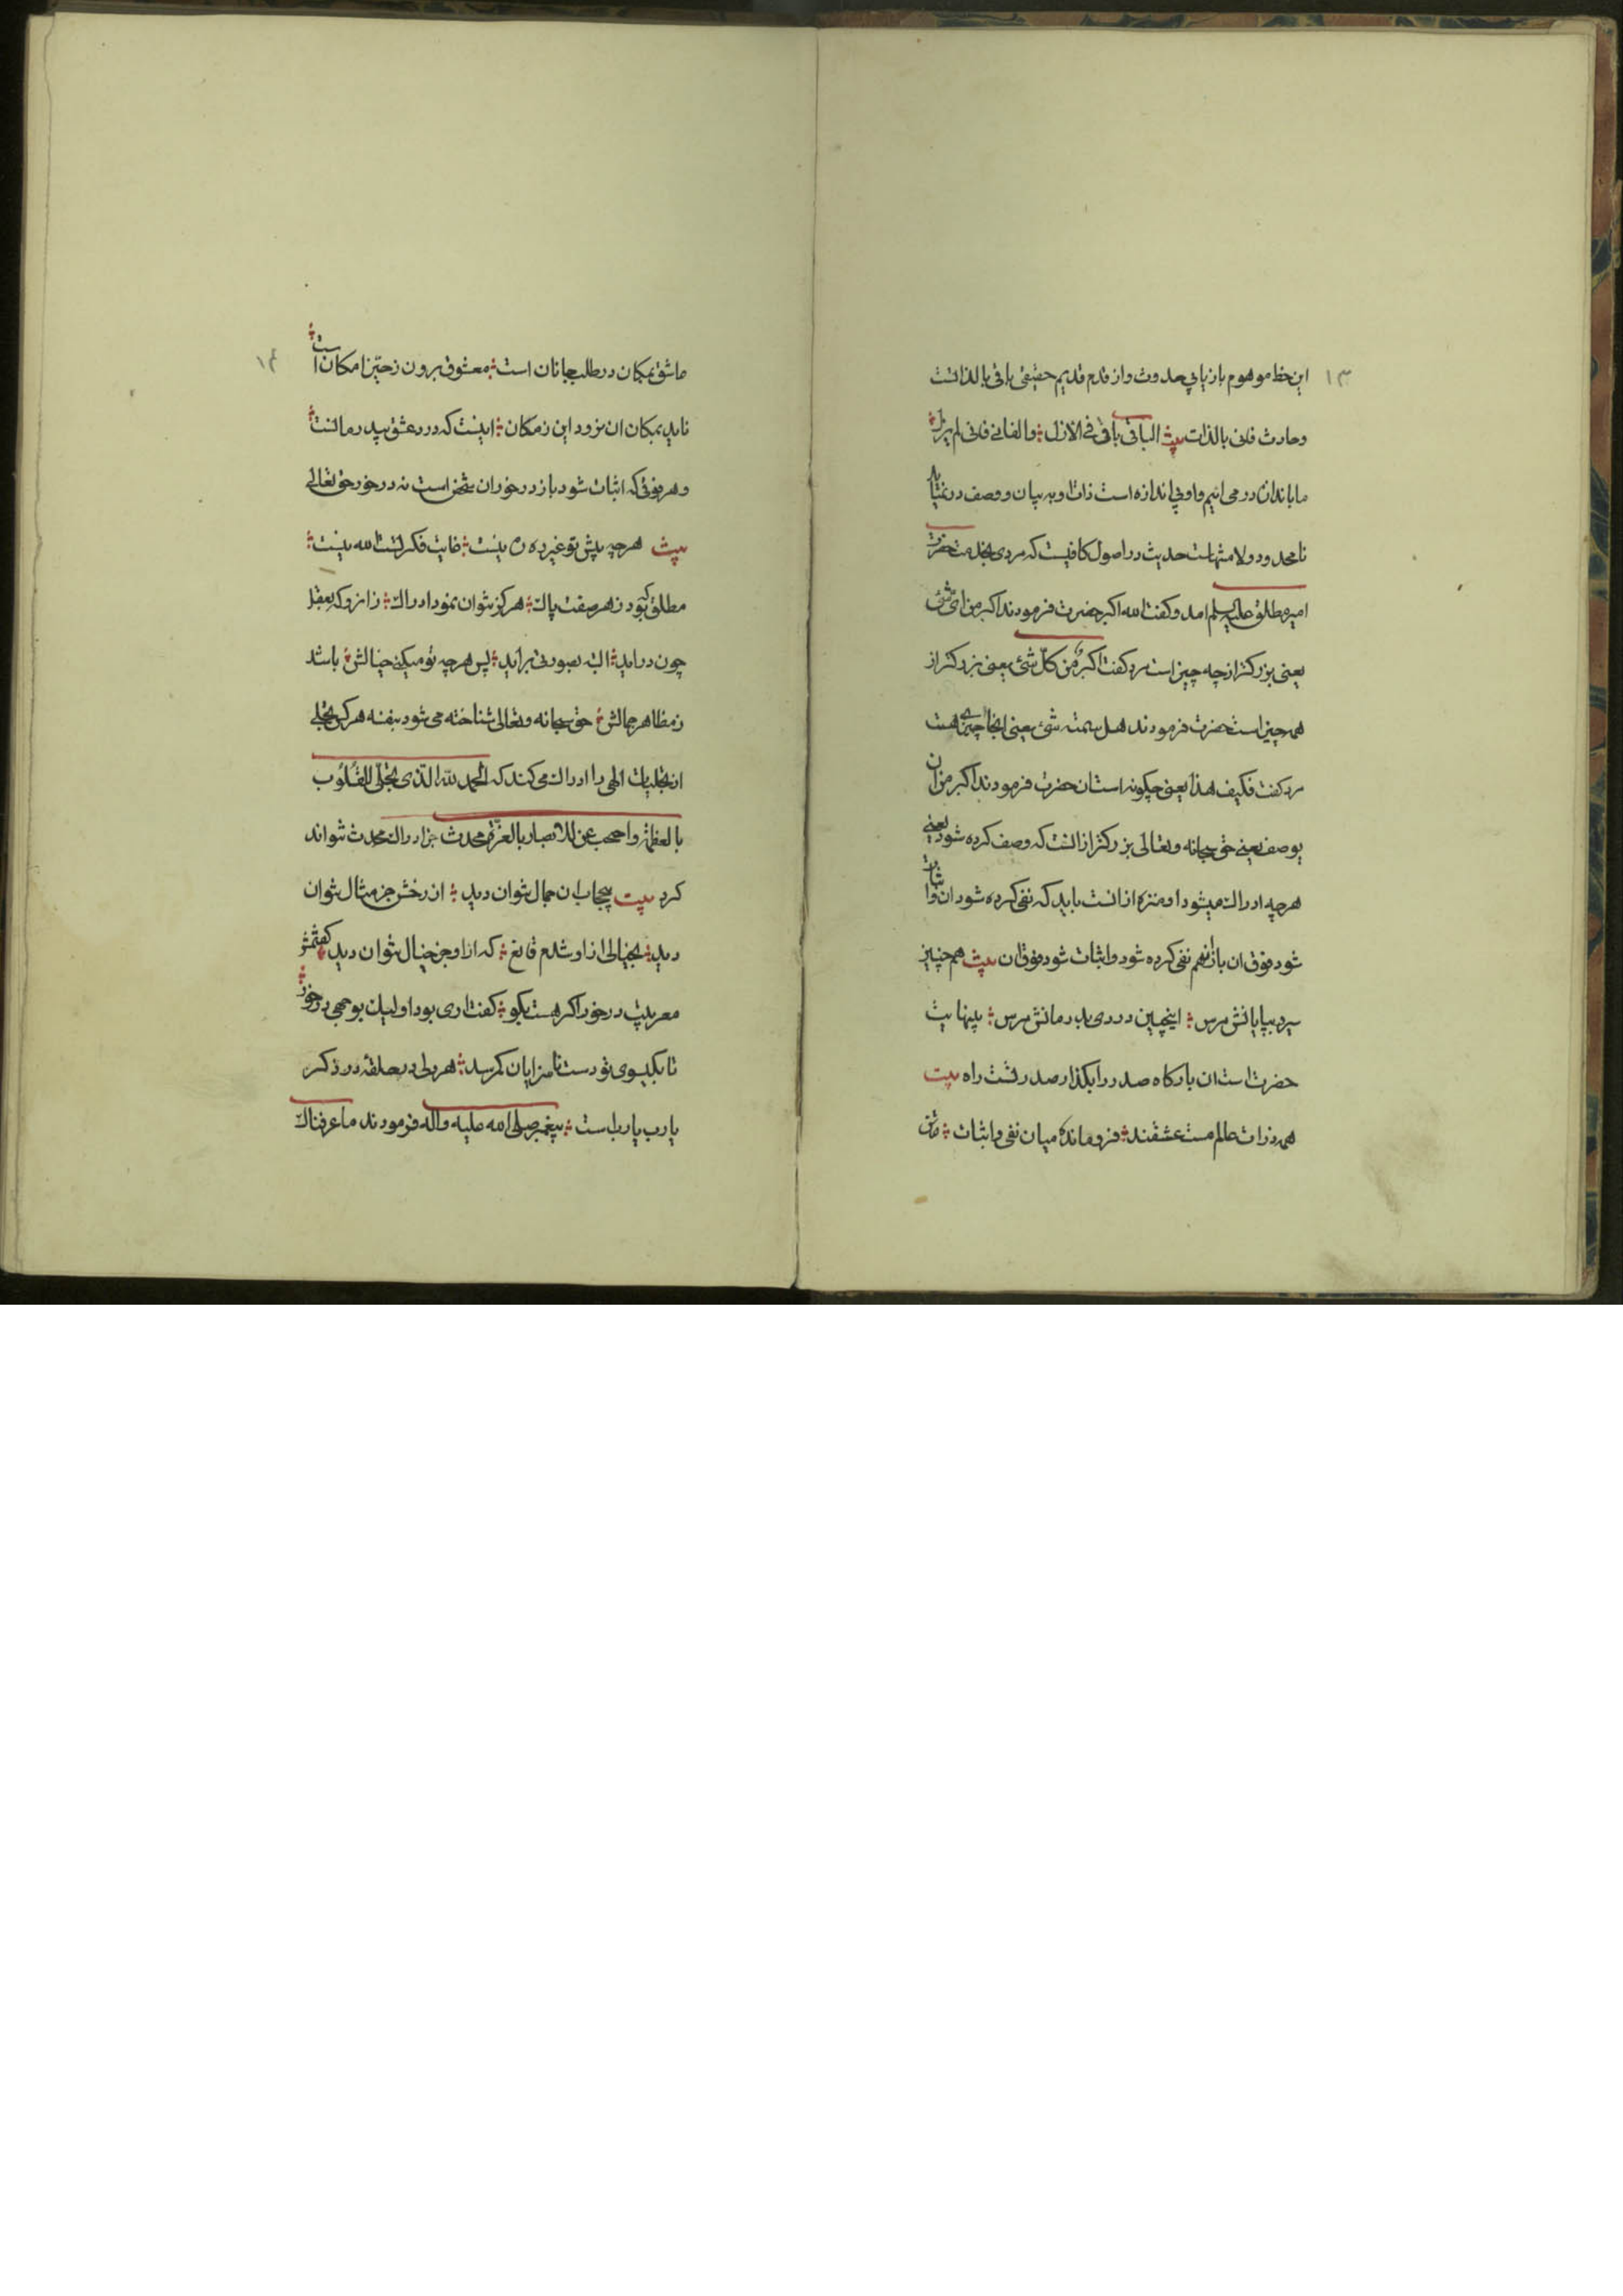 ۱۳
این خط موهوم بازیابی حدوث واز قدم قدیم حقیقی باقی بالذاتست
وحادث فانی بالذات بیت الباقی باقی فی الازل والفانی فانی لم یزل
ما باندازه درمی ائیم واو بی اندازه است ذات او به بیان ووصف درنیاید
نامحدود ولا متهاست حدیث در اصول کافیست که مردی بخدمت حضرت
امیر مطلق علیه السلم امد وکفت الله اکبر حضرت فرمودند اکبر من ای شئ
یعنی بزرکتر از چه چیز است مرد کفت اکبر من کل شئ یعنی بزرکتر از
همه چیز است حضرت فرمودند هل ثمته شئ یعنی ایا انجا چیزی هست
مرد کفت فکیف هذا یعنی چکونه است ان حضرت فرمودند اکبر من ان
یوصف یعنی حق سبحانه وتعالی بزرکتر از انست که وصف کرده شود یعنی
هرچه ادراک میشود او منزه از انست باید که نفی کرده شود ان واثبات
شود فوق ان باز انهم نفی کرده شود واثبات شود فوق ان بیت همچنین
میرو بپایانش مرس اینچنین دردی بدرمانش مرس بینهایت
حضرت است ان بارکاه صدر را بکذار صدر تست راه بیت
همه ذرات عالم مست عشقند فرومانده میان نفی واثبات عاشق
۱۴
عاشق بمکان در طلب جانان است معشوق برون ز حیز امکان است
ناید بمکان ان نرود این ز مکان اینست که درد عشق بیدرمانست
وهر فوقی که اثبات شود باز در خور ان شخص است نه در خور حق تعالی
بیت هرچه پیش تو غیر ده ان نیست غایت فکر تست الله نیست
مطلق که بود ز هر صفت پاک هرکز نتوان نمود ادراک زانرو که بعقل
چون دراید البته بصورتی براید پس هرچه تو میکنی خیالش باشد
ز مظاهر جمالش حق سبحانه وتعالی شناخته می شود بنفسه هرکس تجلی
از تجلیات الهی را ادراک می کند که الحمد لله الذی تجلی للقلوب
بالعظمة واحتجب عن الابصار بالعزة محدث جز ادراک محدث نتواند
کرد بیت بیحجاب ان جمال نتوان دید از رخش جز مثال نتوان
دید بخیالی از او شدم قانع که از او جز خیال نتوان دید کفتمش
معرفت در خور اکر هست بکو کفت اری بود اولیک بوجهی در خور
تا بکیسوی تو دست نا سزایان کم رسد هر دلی در حلقه در ذکر
یارب یارب است پیغمبر صلی الله علیه واله فرمودند ما عرفناک